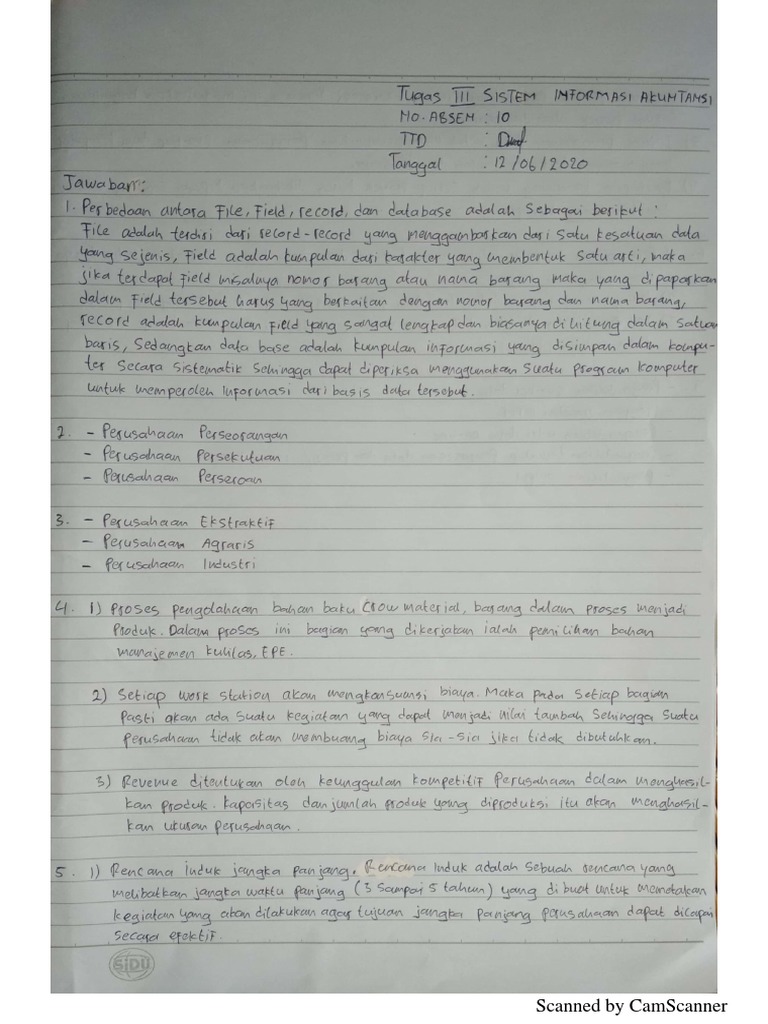 Tugas III SISTEM INFORMASI AKUNTANSI
NO. ABSEN : 10
TTD :
Tanggal : 12/06/2020
Jawaban:
1. Perbedaan antara File, Field, record, dan database adalah sebagai berikut :
File adalah terdiri dari record-record yang menggambarkan dari satu kesatuan data
yang sejenis, Field adalah kumpulan dari karakter yang membentuk satu arti, maka
jika terdapat field misalnya nomor barang atau nama barang maka yang dipaparkan
dalam field tersebut harus yang berkaitan dengan nomor barang dan nama barang,
record adalah kumpulan field yang sangat lengkap dan biasanya dihitung dalam satuan
baris, Sedangkan data base adalah kumpulan informasi yang disimpan dalam kompu-
ter secara sistematik sehingga dapat diperiksa menggunakan suatu program komputer
untuk memperoleh informasi dari basis data tersebut.
2. - Perusahaan Perseorangan
- Perusahaan Persekutuan
- Perusahaan Perseroan
3. - Perusahaan Ekstraktif
- Perusahaan Agraris
- Perusahaan Industri
4. 1) Proses pengolahaan bahan baku (row material, barang dalam proses menjadi
Produk. Dalam proses ini bagian yang dikerjakan ialah pemilihan bahan
manajemen kulilas, EPE.
2) Setiap work station akan mengkonsumsi biaya. Maka pada setiap bagian
Pasti akan ada suatu kegiatan yang dapat menjadi nilai tambah sehingga suatu
perusahaan tidak akan membuang biaya sia-sia jika tidak dibutuhkan.
3) Revenue ditentukan oleh keunggulan kompetitif perusahaan dalam menghasil-
kan produk. Kapasitas dan jumlah produk yang diproduksi itu akan menghasil-
kan ukuran perusahaan.
5. 1) Rencana induk jangka panjang. Rencana Induk adalah sebuah rencana yang
melibatkan jangka waktu panjang (3 sampai 5 tahun) yang dibuat untuk memetakan
kegiatan yang akan dilakukan agar tujuan jangka panjang perusahaan dapat dicapai
secara efektif.
SIDU
Scanned by CamScanner